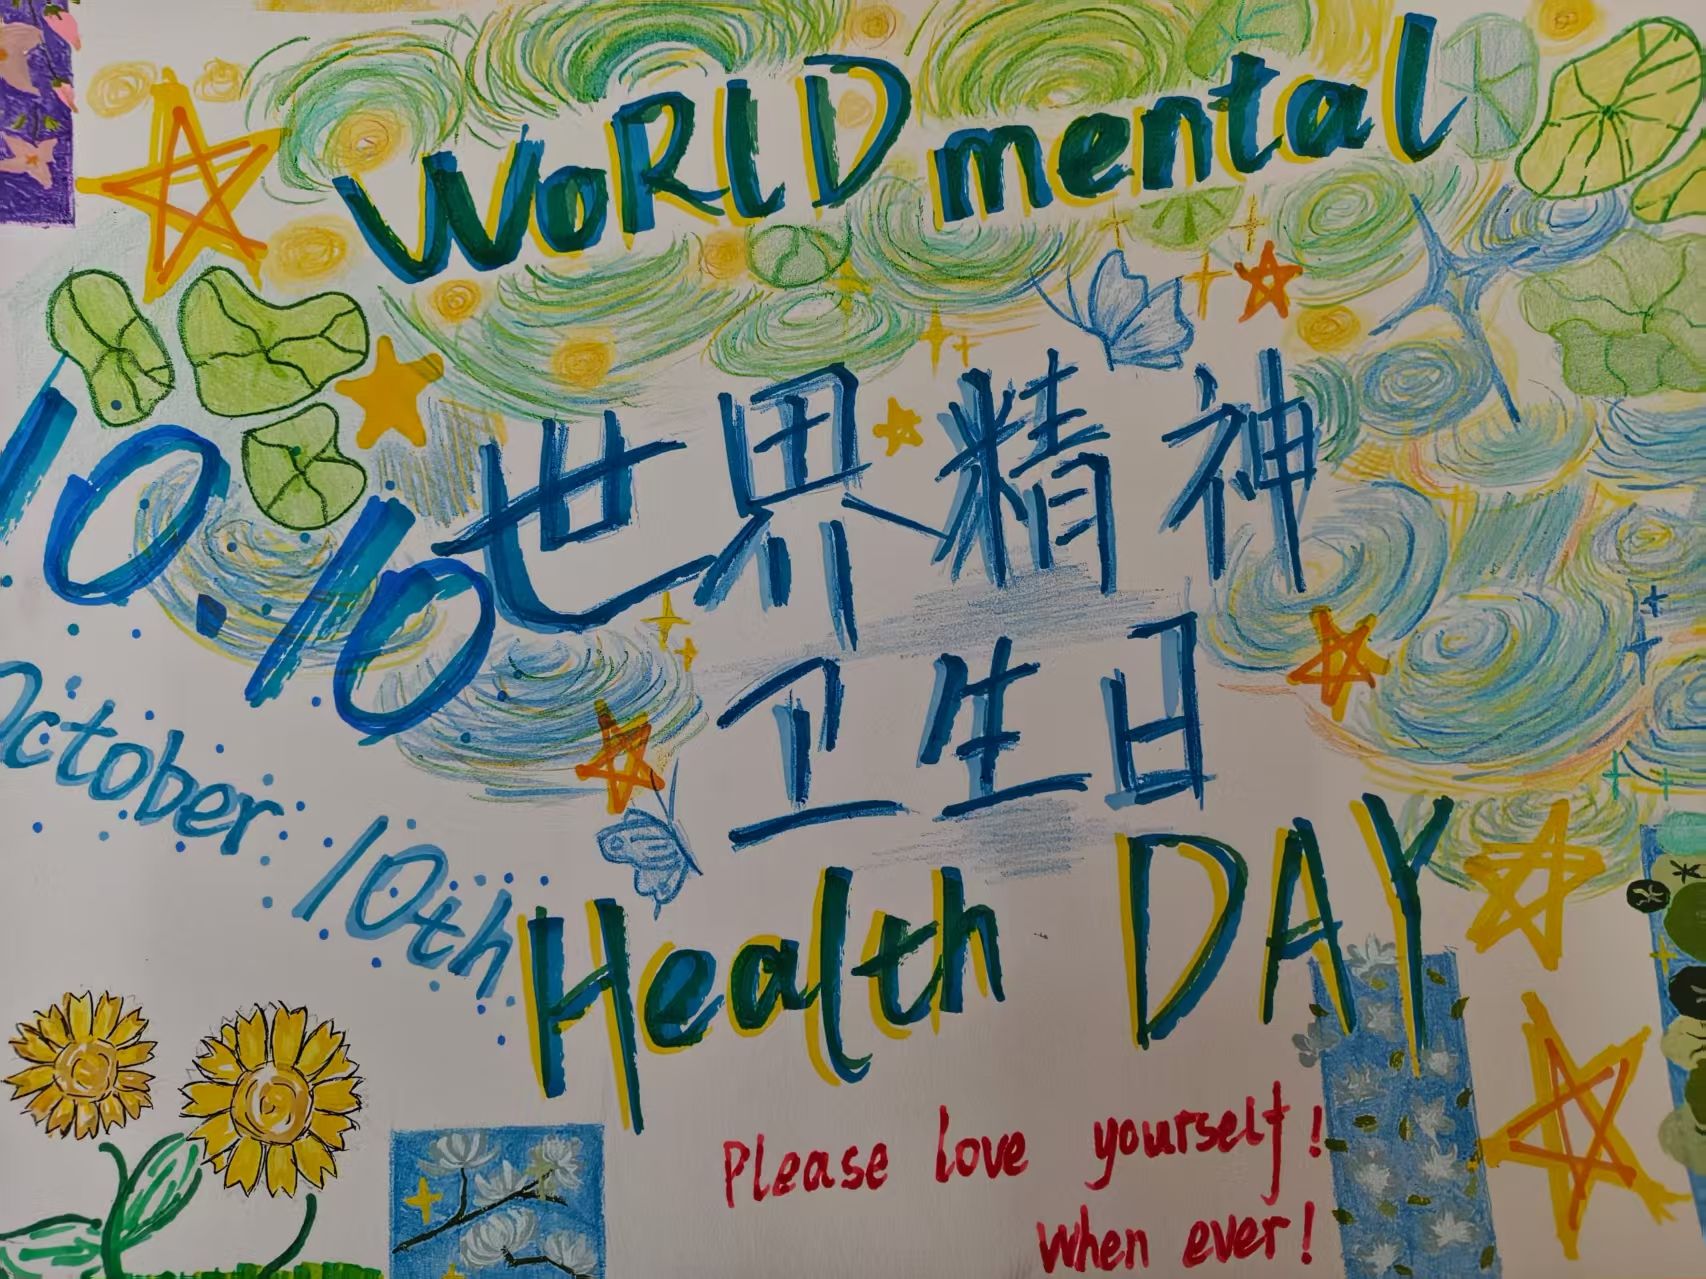 WoRLD mental
10.10
世界精神
卫生日
October 10th
Health DAY
Please love yourself!
when ever!